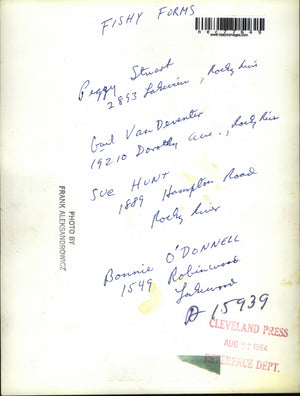 FISHY FORMS
Peggy Stuart
2893 Lakeview, Rocky River
Gail Van Deventer
19210 Dorothy Ave., Rocky River
SUE HUNT
1889 Hampton Road
Rocky River
Bonnie O'DONNELL
1549 Robinwood
Lakewood
PHOTO BY
FRANK ALEKSANDROWICZ
A 15939
CLEVELAND PRESS
AUG 27 1964
REFERENCE DEPT.